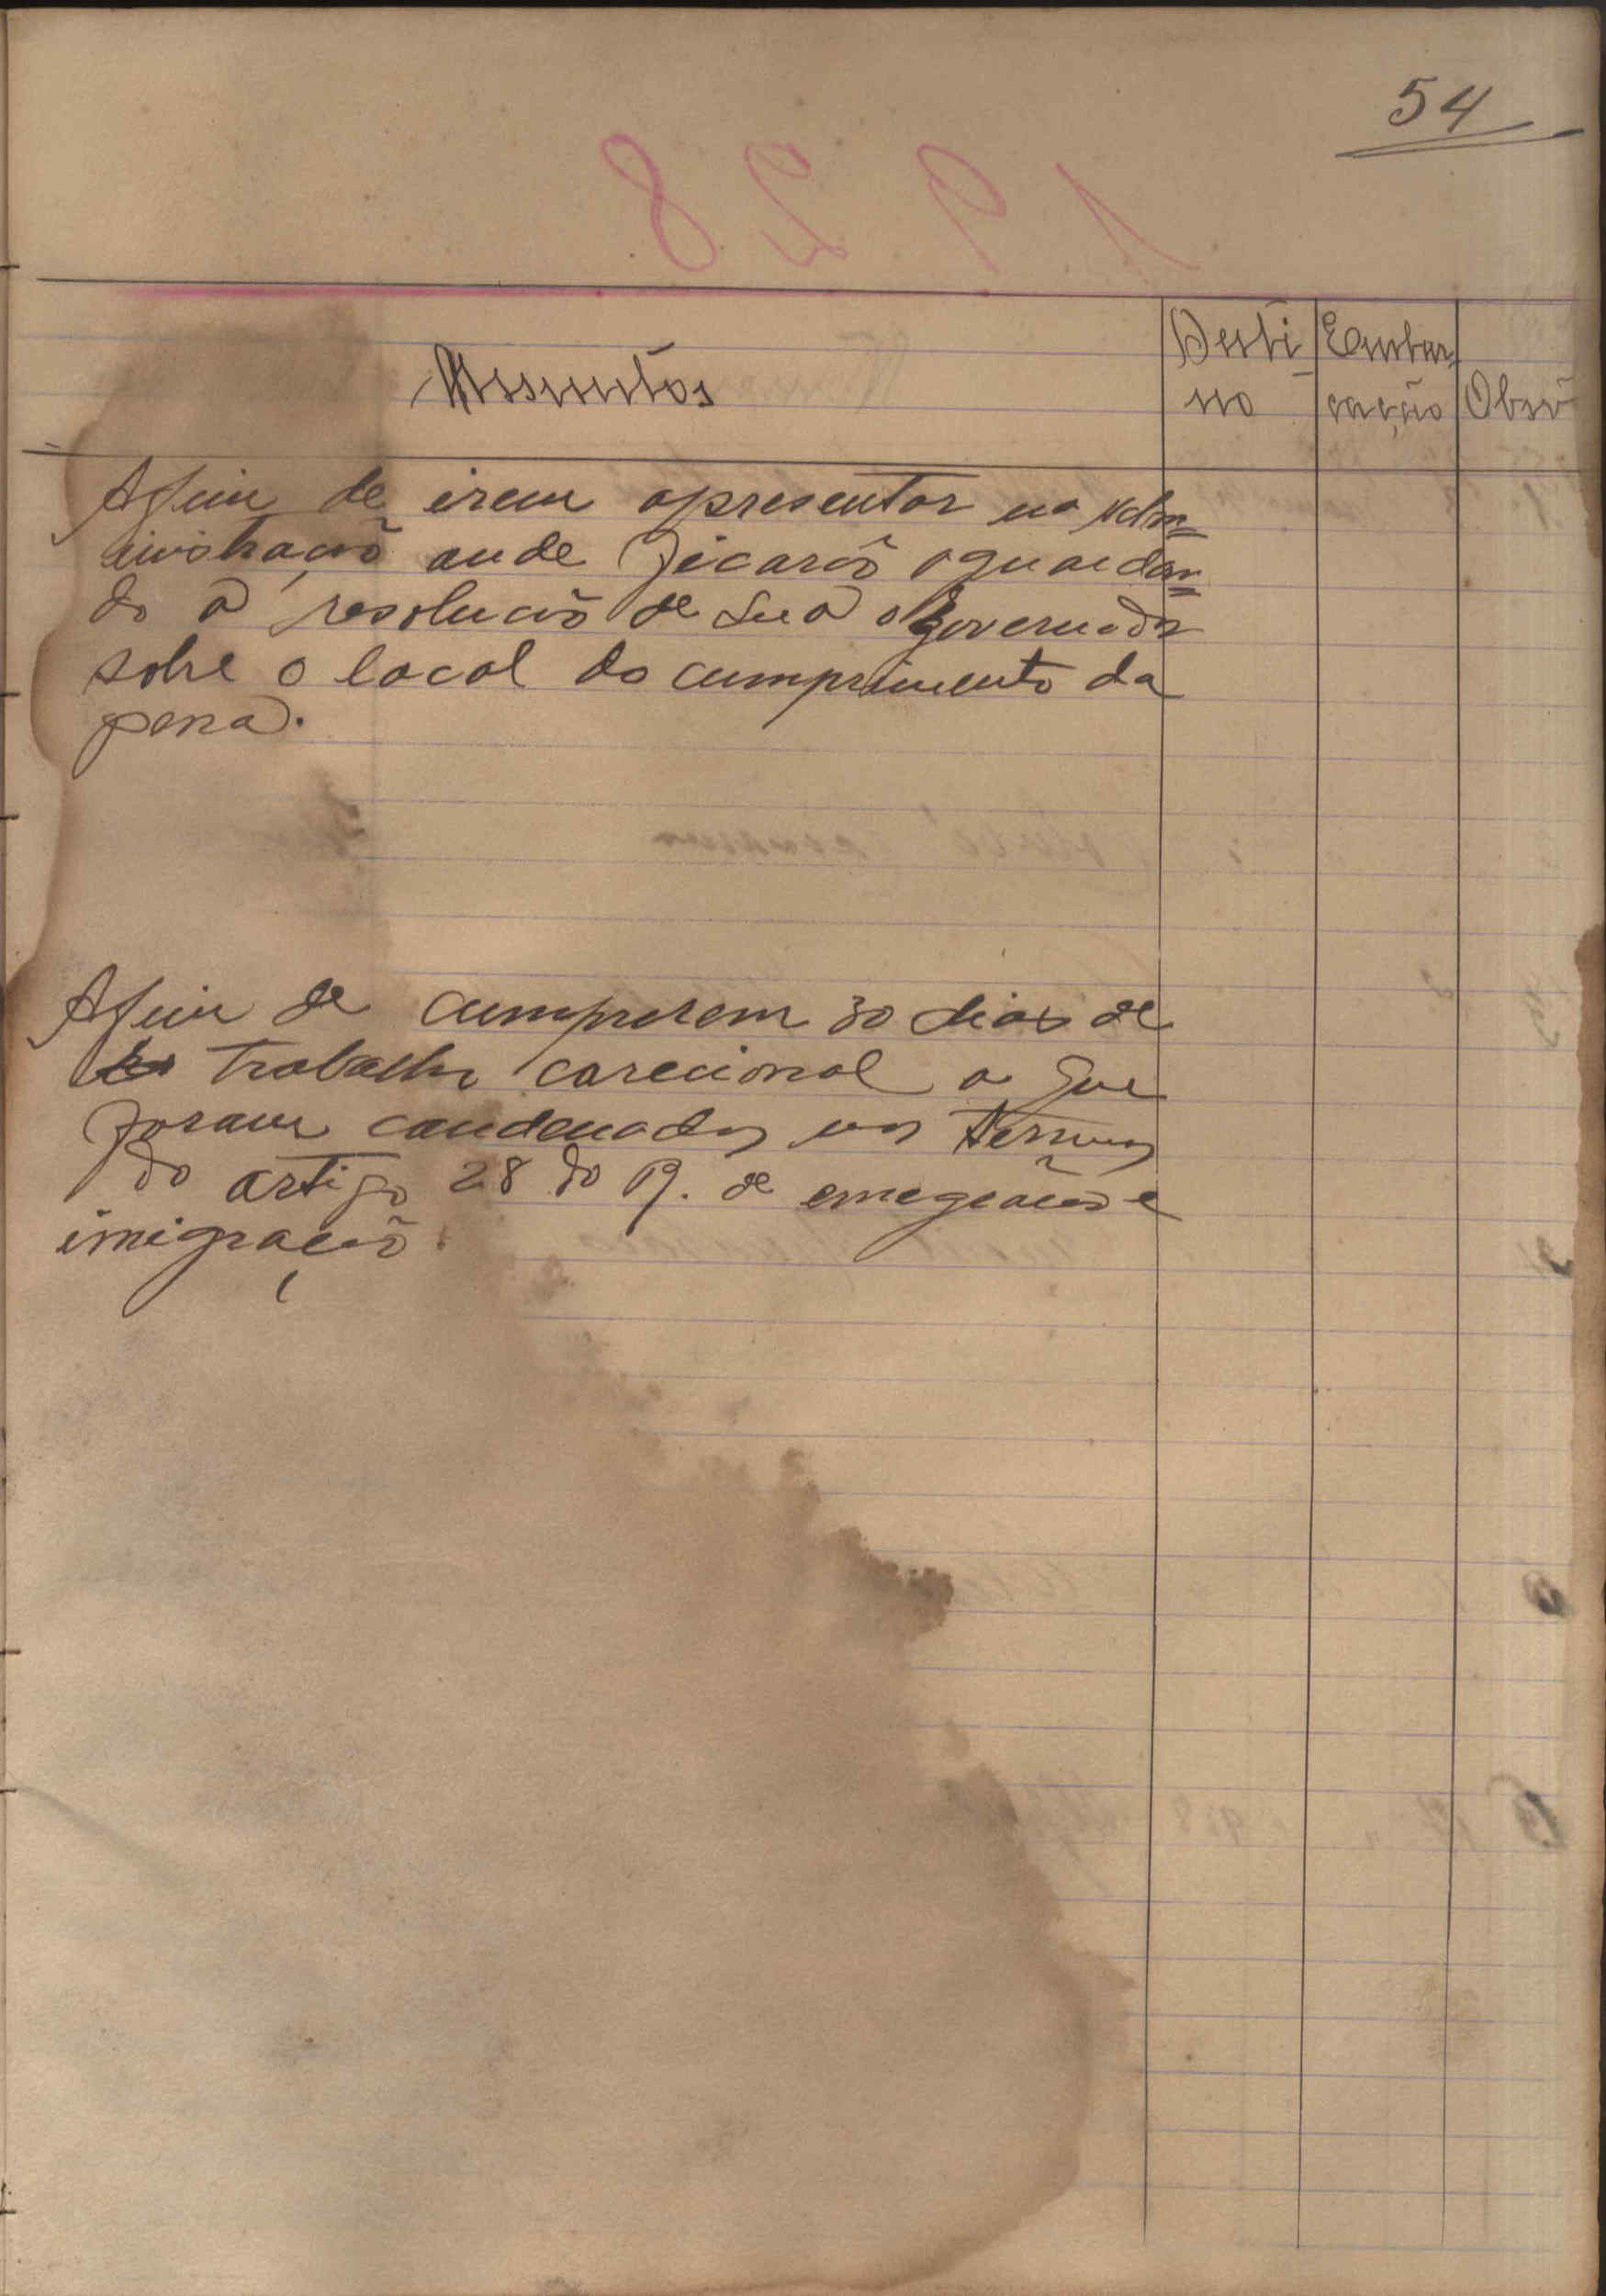 54
1928
Assuntos
Desti-
no
Embar-
cação
Obsv
Afim de irem apresentar na Adm=
inistração onde ficarão aguardan=
do a resolução de Sua o governador
sobre o local do cumprimento da
pena.
Afim de cumprirem 30 dias de
trabalho correcional a que
foram condenados nos termos
do artigo 28 do R. de emegração e
imigração.